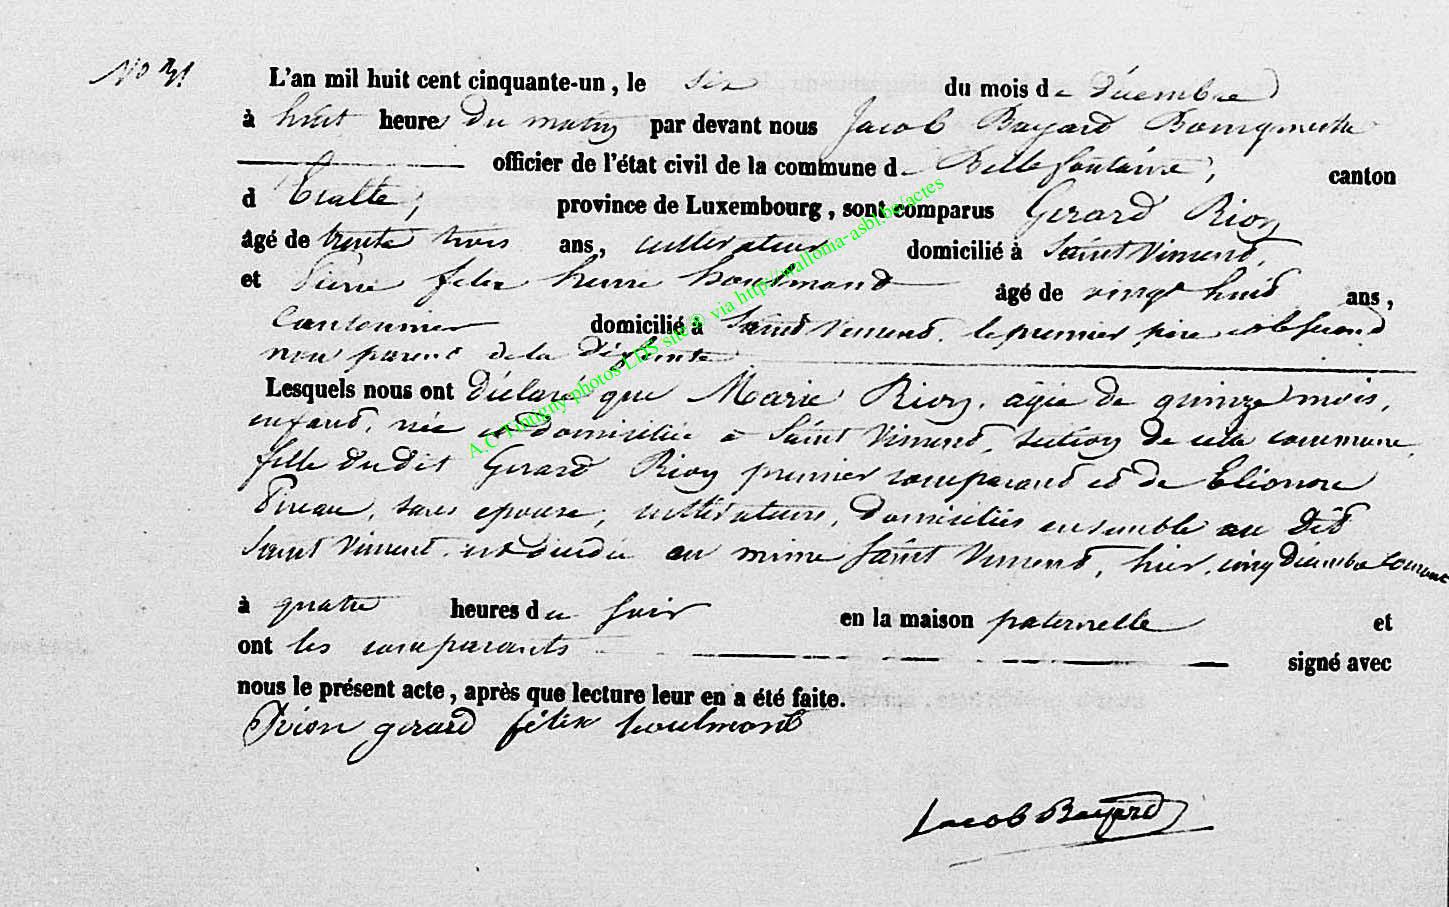 No 31
L'an mil huit cent cinquante-un, le six du mois de Décembre
à huit heures du matin par devant nous Jacob Bayard Bourgmestre
officier de l'état civil de la commune de Bellefontaine, canton
d'Etalle, province de Luxembourg, sont comparus Gerard Rion
âgé de trente trois ans, cultivateur domicilié à Saint Vincent,
et Pierre felix henri houlmont âgé de vingt huit ans,
Cantonnier domicilié à Saint Vincent, le premier père et le second
non parent de la défunte
Lesquels nous ont déclaré que Marie Rion, agée de quinze mois,
enfant, née et domiciliée à Saint Vincent, section de cette commune,
fille du dit Gerard Rion premier comparant et de Elionore
Pireau, sans epouse, cultivateurs, domiciliés ensemble au dit
Saint Vincent est décédée au même Saint Vincent, hier, cinq Décembre Courant
à quatre heures du soir en la maison paternelle et
ont les comparants signé avec
nous le présent acte, après que lecture leur en a été faite.
Rion gerard félix houlmont
Jacob Bayard
A.C Tintigny photos LDS site© via http://wallonia-asbl.be/actes